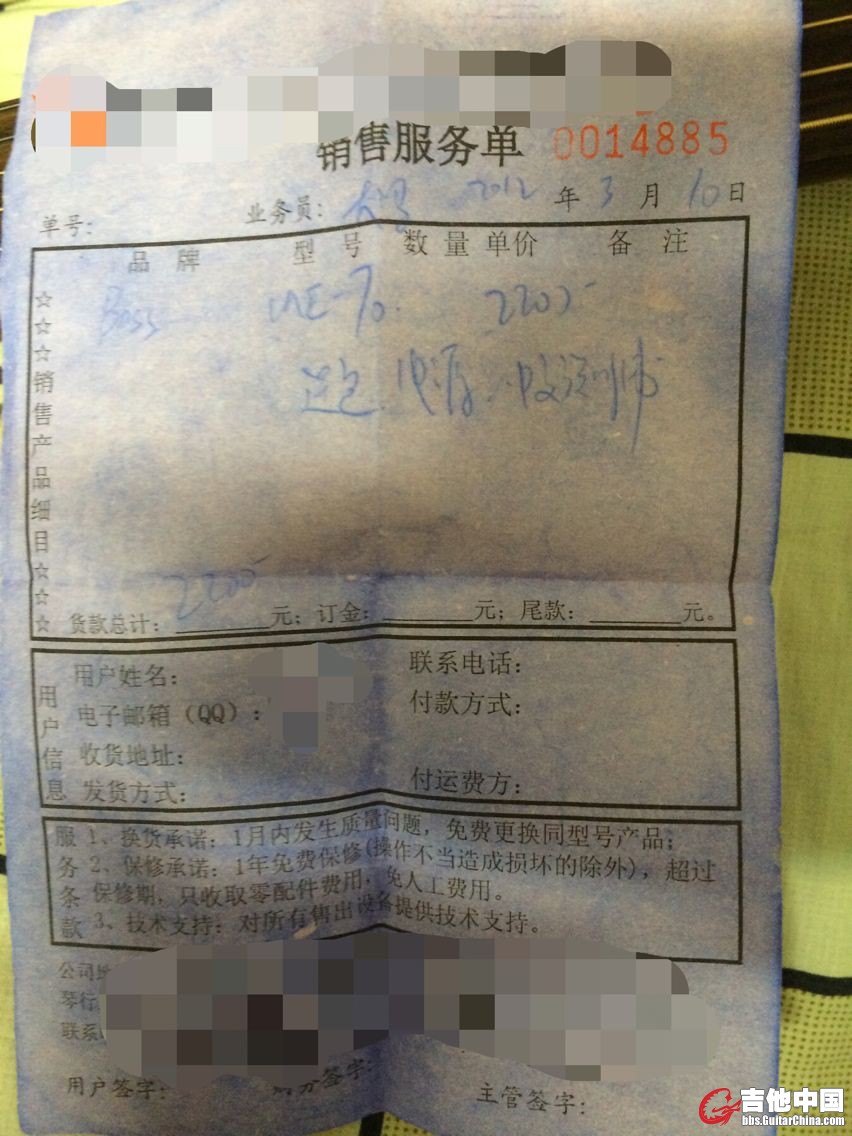 销售服务单 0014885
单号： 业务员： 2012 年 3 月 10 日
品牌 型号 数量 单价 备注
☆☆☆销售产品细目☆☆☆
Boss ME-70. 2200
送包、电源、中文说明书
货款总计：2200元；订金：______元；尾款：______元。
用户信息
用户姓名： 联系电话：
电子邮箱（QQ）： 付款方式：
收货地址：
发货方式： 付运费方：
服务条款
1、换货承诺：1月内发生质量问题，免费更换同型号产品；
2、保修承诺：1年免费保修(操作不当造成损坏的除外)，超过
保修期，只收取零配件费用，免人工费用。
3、技术支持：对所有售出设备提供技术支持。
公司地
琴行
联系
用户签字： 签字： 主管签字：
吉他中国
bbs.GuitarChina.com